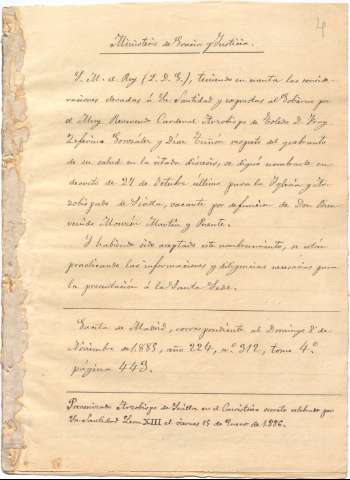 4
Ministerio de Gracia y Justicia.
S. M. el Rey (Q. D. G.), teniendo en cuenta las conside-
raciones elevadas á Su Santidad y expuestas al Gobierno por
el Muy Reverendo Cardenal Arzobispo de Toledo D. Fray
Zeferino González y Díaz Tuñón respecto del quebranto
de su salud en la citada diócesis, se dignó nombrarle en
decreto de 27 de Octubre último para la Iglesia y Ar-
zobispado de Sevilla, vacante por defuncion de Don Bien-
venido Monzón Martín y Puente.
Y habiendo sido aceptado este nombramiento, se están
practicando las informaciones y diligencias necesarias para
la presentación á la Santa Sede.
Gaceta de Madrid, correspondiente al Domingo 8 de
Noviembre de 1.885, año 224, n.º 312, tomo 4.º
página 443.
Preconizado Arzobispo de Sevilla en el Consistorio secreto celebrado por
Su Santidad Leon XIII el viernes 15 de Enero de 1.886.